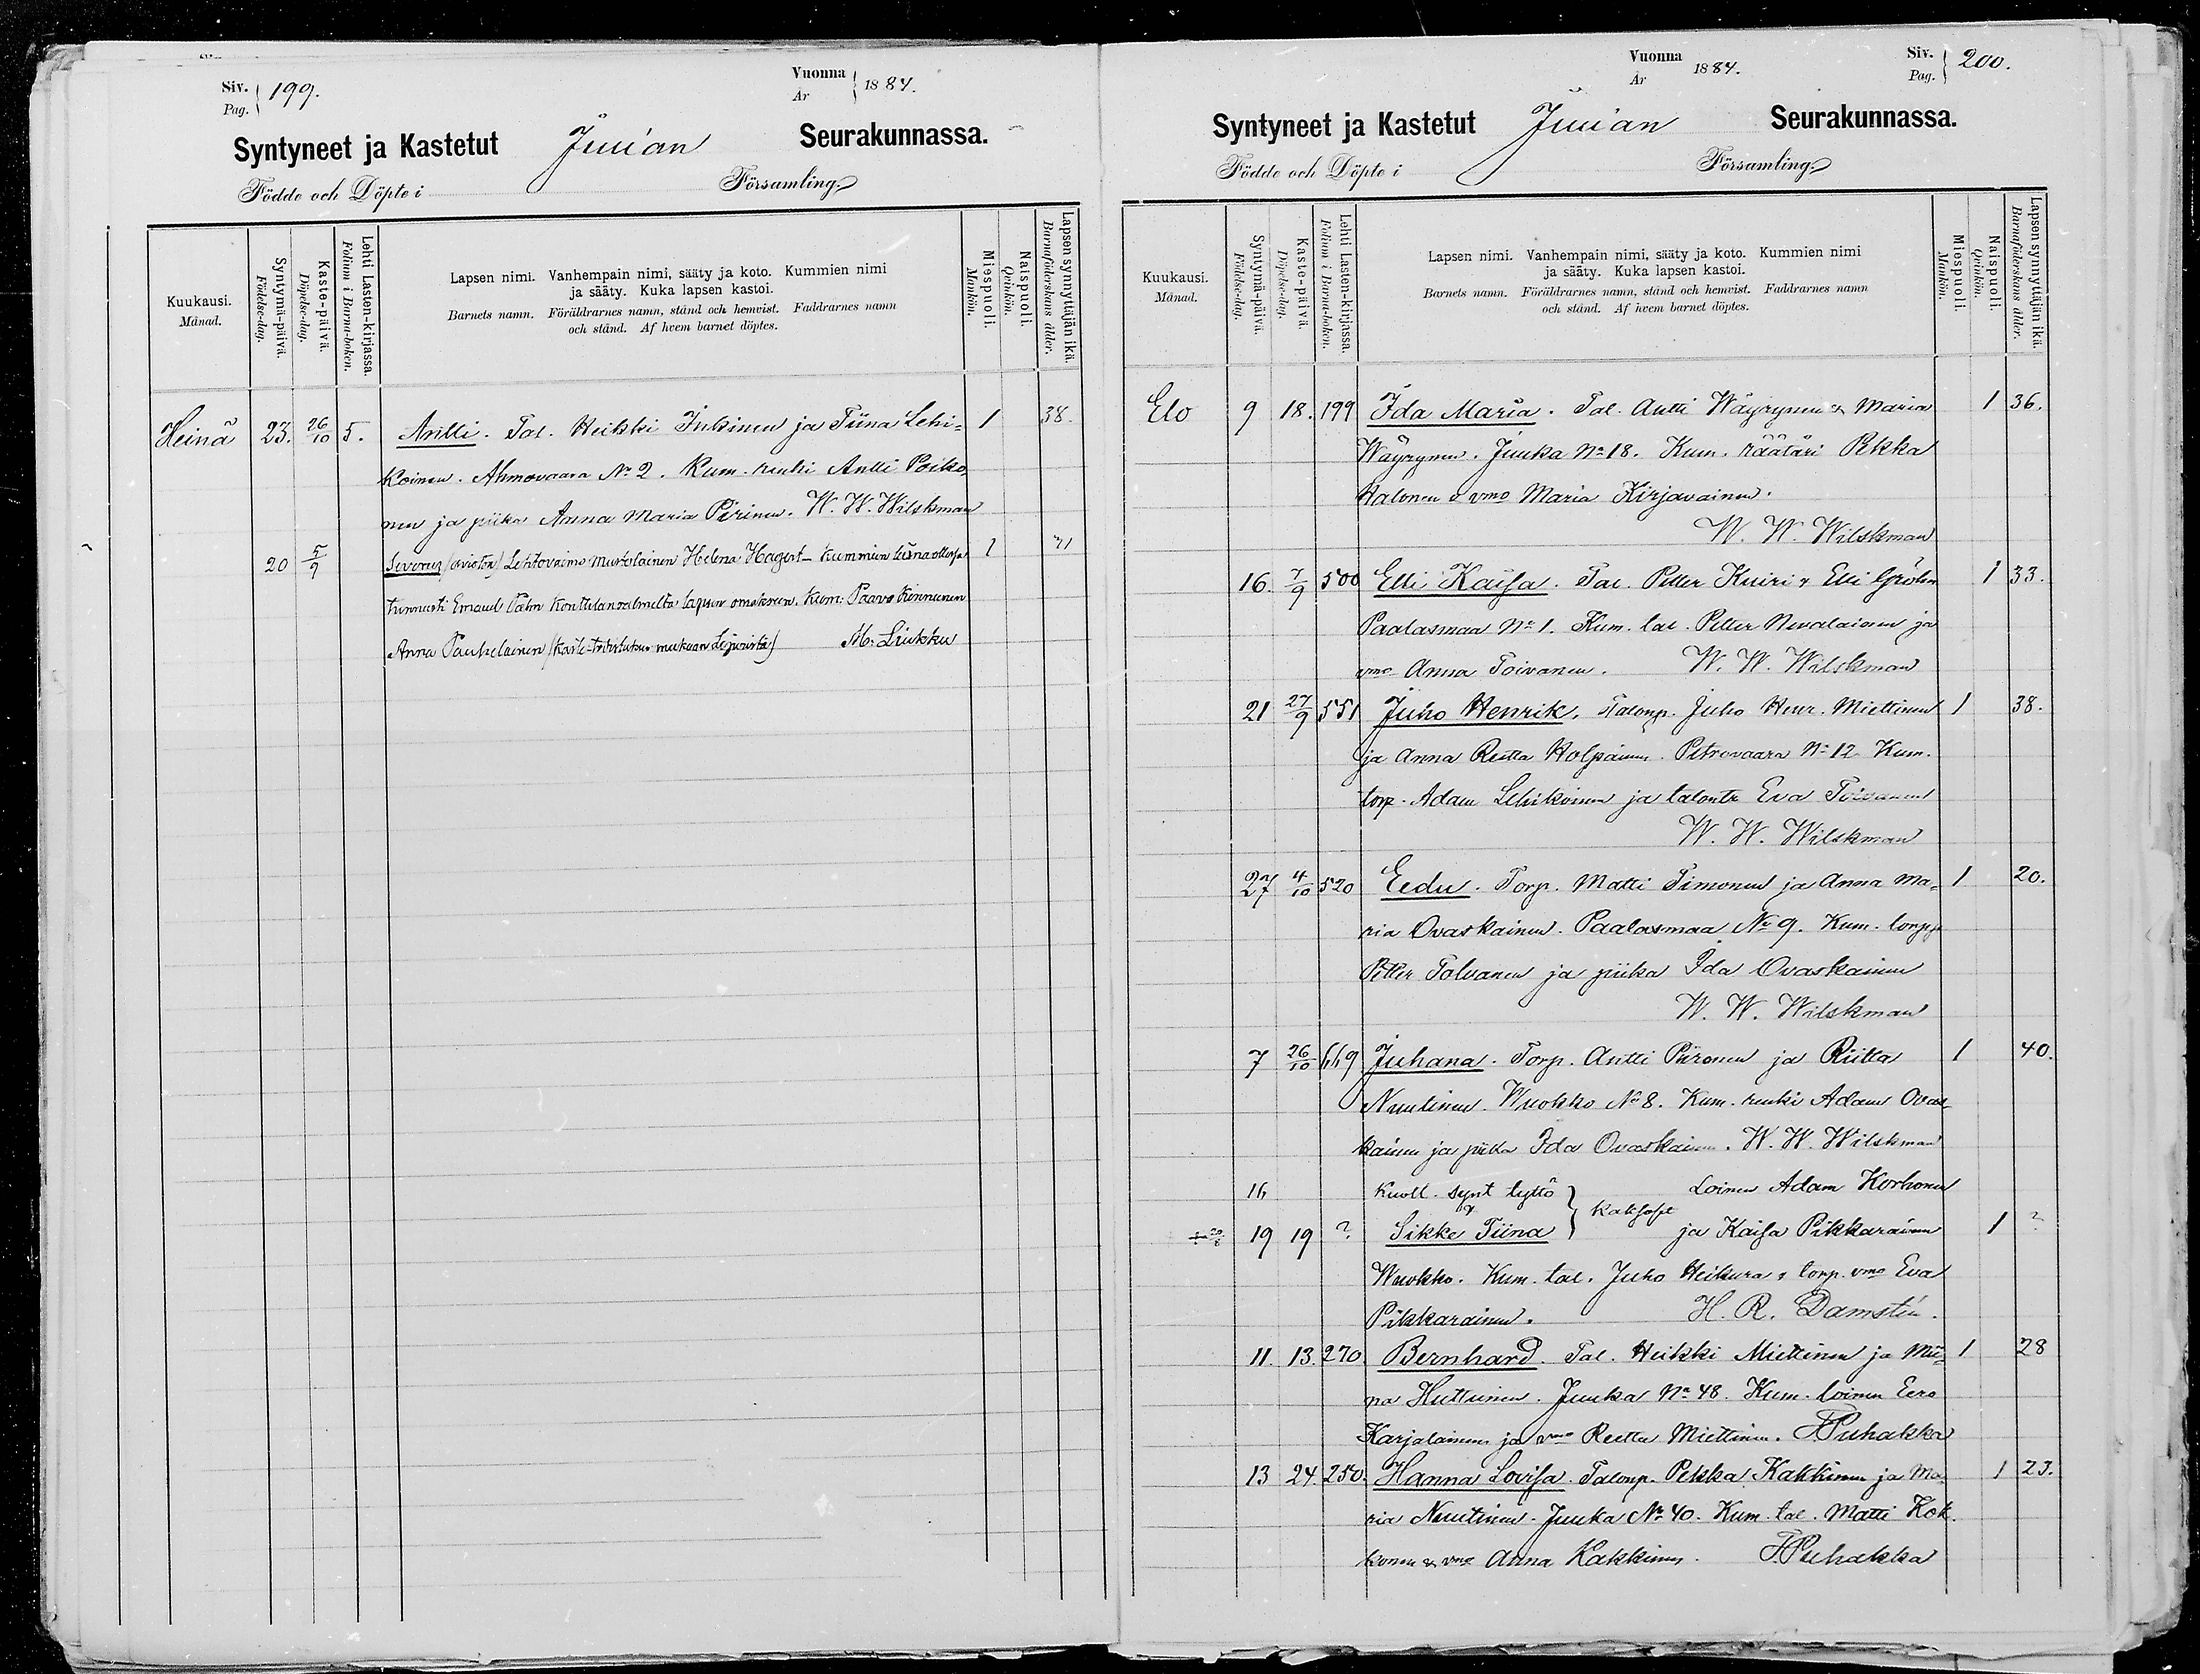 Siv. Pag. 199.
Vuonna År 1884.
Syntyneet ja Kastetut Juuan Seurakunnassa.
Födde och Döpte i Församling.
Kuukausi. Månad.
Syntymä-päivä. Födelse-dag.
Kaste-päivä. Döpelse-dag.
Lehti Lasten-kirjassa. Folium i Barna-boken.
Lapsen nimi. Vanhempain nimi, sääty ja koto. Kummien nimi
ja sääty. Kuka lapsen kastoi.
Barnets namn. Föräldrarnes namn, stånd och hemvist. Faddrarnes namn
och stånd. Af hvem barnet döptes.
Miespuoli. Mankön.
Naispuoli. Qvinkön.
Lapsen synnyttäjän ikä. Barnaföderskans ålder.
Heinä 23. 26/10 5. Antti. Tal. Heikki Inkinen ja Tiina Lehi= 1 38.
koinen. Ahmovaara No 2. Kum. renki Antti Poiko
nen ja piika Anna Maria Piirinen. W. W. Wilskman
20 5/9 Severus (avioton) Lehtovaimo Helena Hagert kummien läsnaollessa 1 41
tunnusti Palm lapsen omakseen. Kum: Paavo Kinnunen
Anna mukaan M. Liukku
Vuonna År 1884.
Siv. Pag. 200.
Syntyneet ja Kastetut Juuan Seurakunnassa.
Födde och Döpte i Församling.
Kuukausi. Månad.
Syntymä-päivä. Födelse-dag.
Kaste-päivä. Döpelse-dag.
Lehti Lasten-kirjassa. Folium i Barna-boken.
Lapsen nimi. Vanhempain nimi, sääty ja koto. Kummien nimi
ja sääty. Kuka lapsen kastoi.
Barnets namn. Föräldrarnes namn, stånd och hemvist. Faddrarnes namn
och stånd. Af hvem barnet döptes.
Miespuoli. Mankön.
Naispuoli. Qvinkön.
Lapsen synnyttäjän ikä. Barnaföderskans ålder.
Elo 9 18. 199 Ida Maria. Tal. Antti Wäyrynen & Maria 1 36.
Wäyrynen. Juuka No 18. Kum. räätäri Pekka
Halonen & vmo Maria Kirjavainen.
W. W. Wilskman
16. 7/9 500 Elli Kaisa. Tal. Petter Kuiri & Elli Gröhn 1 33.
Paalasmaa No 1. Kum. tal. Petter Nevalainen ja
vmo Anna Toivanen. W. W. Wilskman
21 27/9 551 Juho Henrik. Talonp. Juho Henr. Miettinen 1 38.
ja Anna Reetta Holpainen. Petrovaara No 12 Kum.
torp. Adam Lehikoinen ja talontr Eva Toivanen
W. W. Wilskman
27 4/10 520 Eedu. Torp. Matti Timonen ja Anna Ma= 1 20.
ria Ovaskainen. Paalasmaa No 9. Kum. torpp
Petter Tolvanen ja piika Ida Ovaskainen
W. W. Wilskman
7 26/10 669 Juhana. Torp. Antti Piironen ja Riitta 1 40.
Nuutinen. Wuokko No 8. Kum. renki Adam Ovas=
kainen ja piika Ida Ovaskainen. W. W. Wilskman
16 Kuoll. synt tyttö Loinen Adam Korhonen
19 19 ? & Sikke Tiina } Kaksoset ja Kaisa Pikkarainen 1 ?
Wuokko. Kum. tal. Juho Heikura & torp. vmo Eva
Pikkarainen. H. R. Damstén.
11. 13. 270. Bernhard. Tal. Heikki Miettinen ja Mii= 1 28
na Huttunen. Juuka No 48. Kum. loinen Eero
Karjalainen ja vmo Reetta Miettinen. Puhakka
13 24. 250. Hanna Lovisa. Talonp. Pekka Kakkinen ja Ma= 1 23.
ria Nuutinen. Juuka No 40. Kum. tal. Matti Kok.
konen & vmo Anna Kakkinen. Puhakka